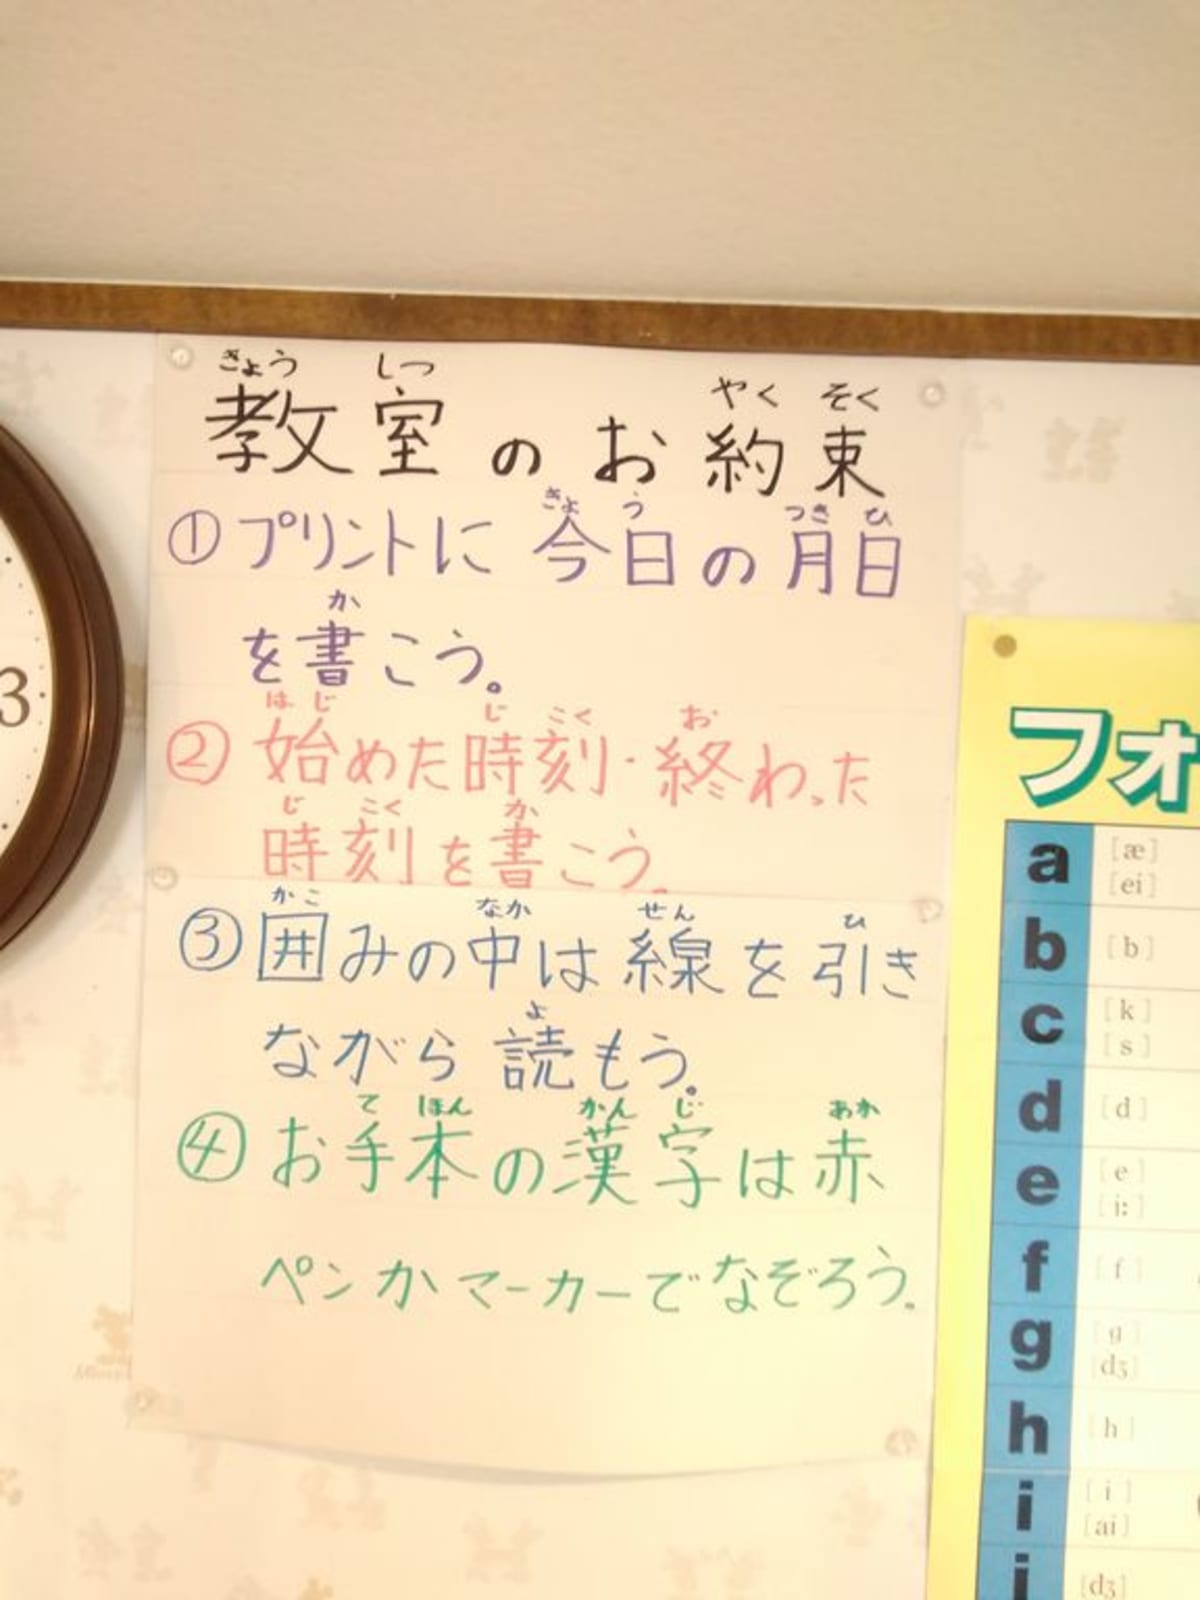 きょう しつ やく そく
教室のお約束
きょう つき ひ
①プリントに今日の月日
か
を書こう。
はじ じ こく お
②始めた時刻・終わった
じ こく か
時刻を書こう。
かこ なか せん ひ
③囲みの中は線を引き
よ
ながら読もう。
て ほん かん じ あか
④お手本の漢字は赤
ペンかマーカーでなぞろう。
3
フォ
a [æ]
[ei]
b [b]
c [k]
[s]
d [d]
e [e]
[i:]
f [f]
g [g]
[dʒ]
h [h]
i [i]
[ai]
j [dʒ]